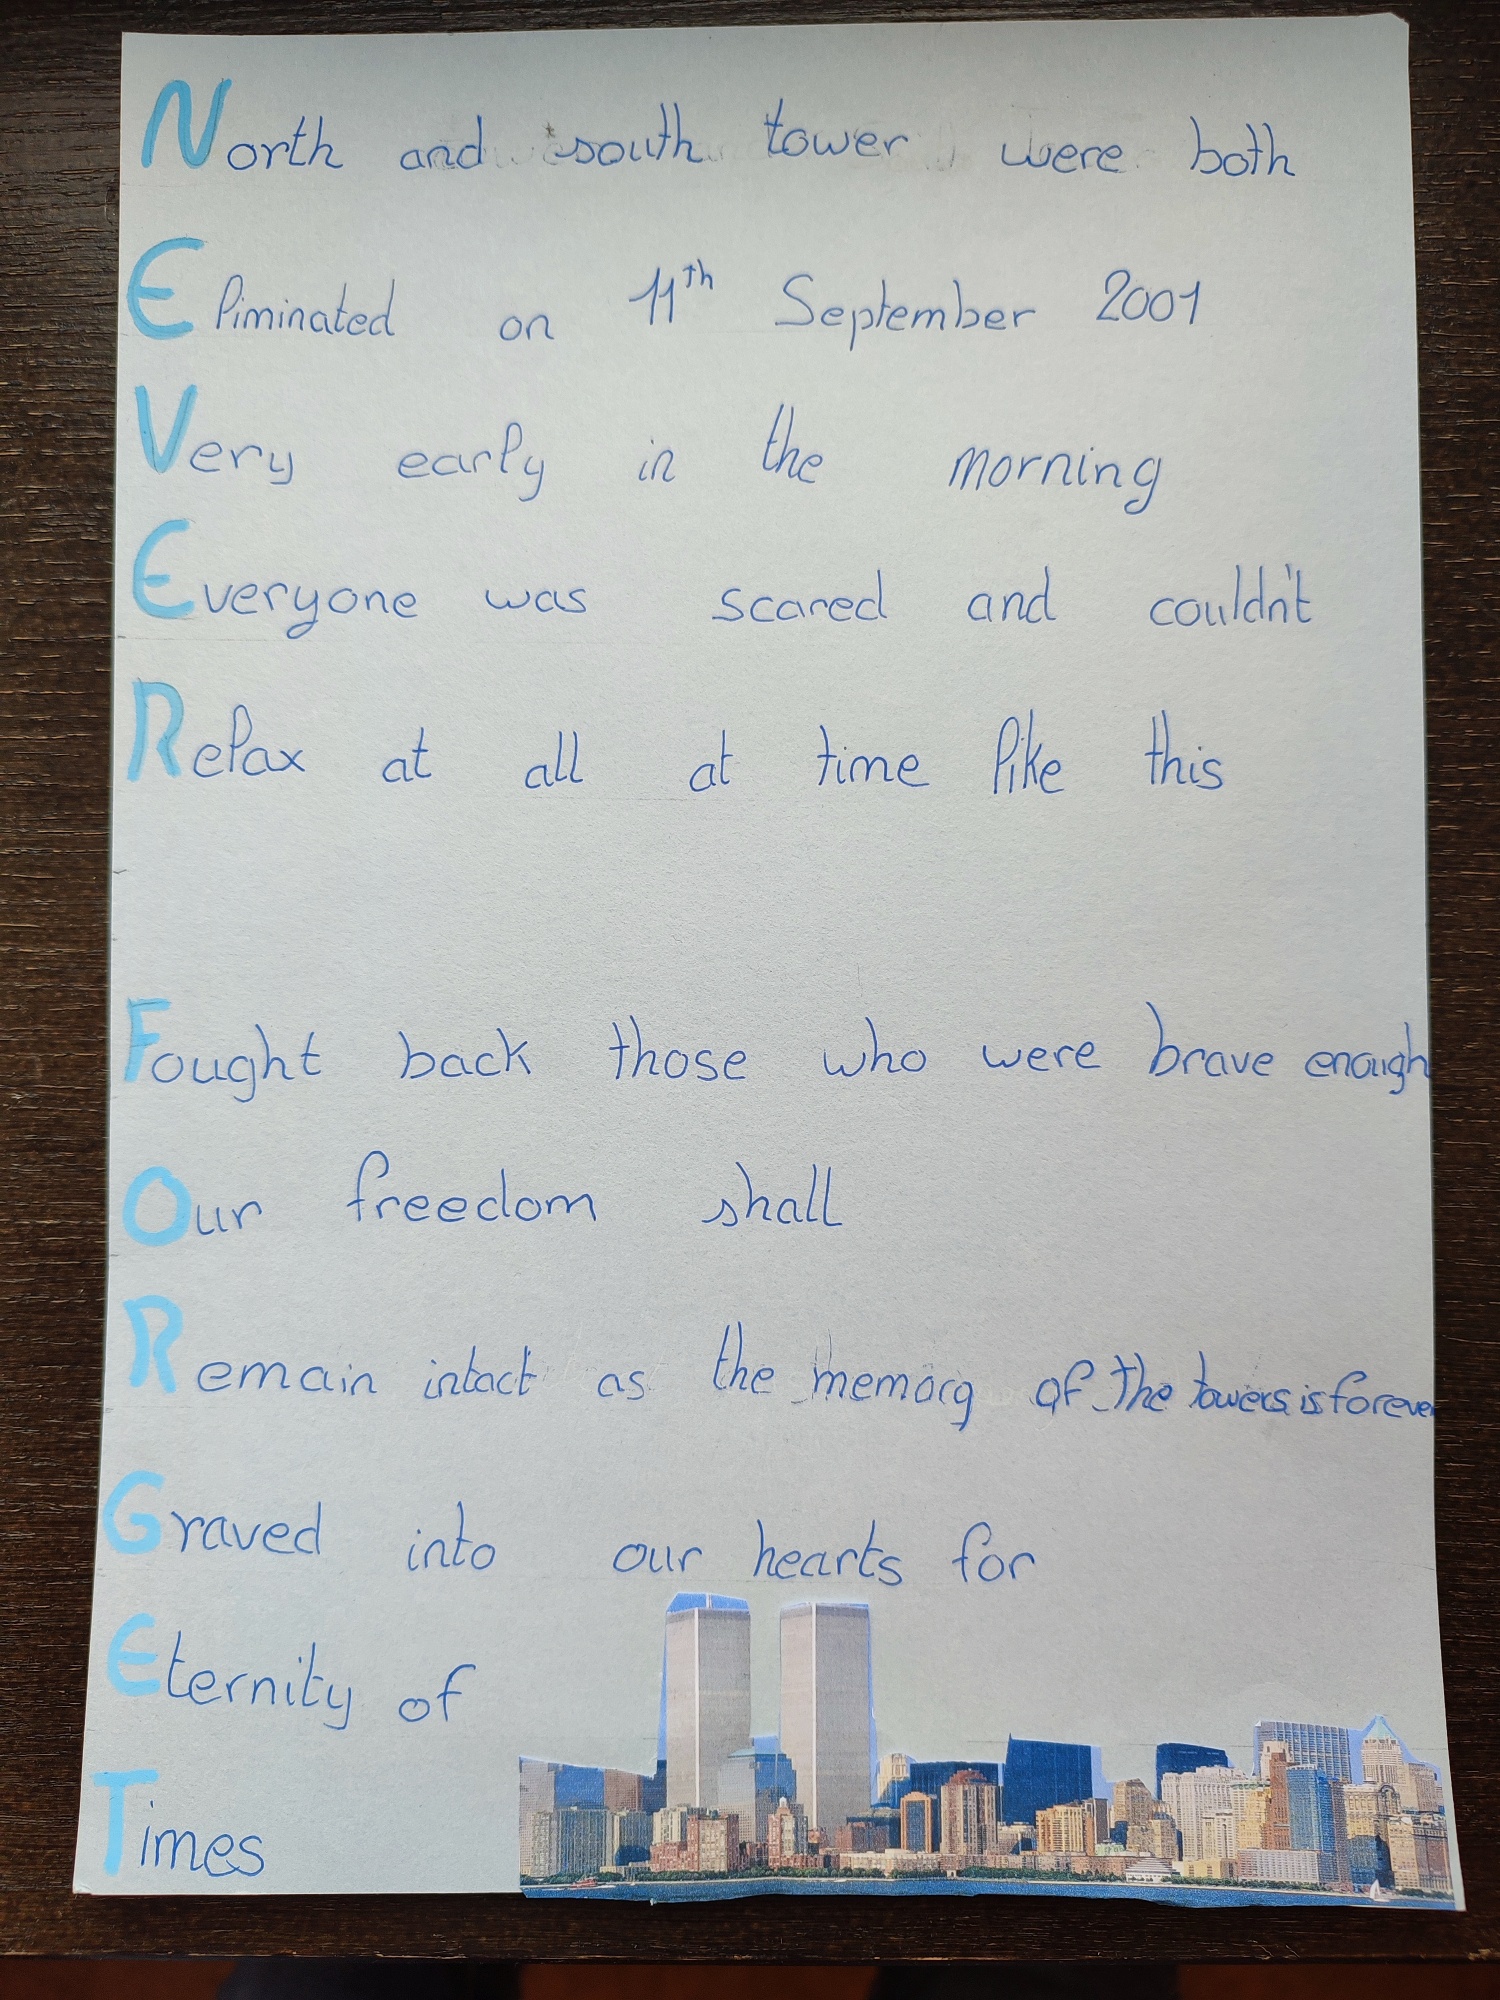 North and south tower were both
Eliminated on 11th September 2001
Very early in the morning
Everyone was scared and couldn't
Relax at all at time like this
Fought back those who were brave enough
Our freedom shall
Remain intact as the memory of the towers is forever
Graved into our hearts for
Eternity of
Times